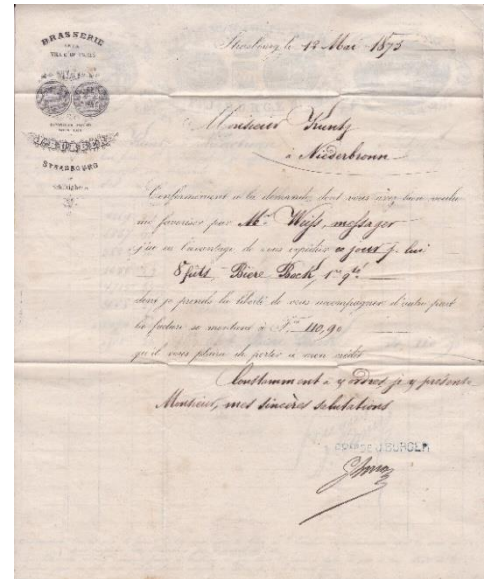 BRASSERIE
DE LA
VILLE DE PARIS
J. BURGER
STRASBOURG
Strasbourg, le 12 Mai 1875
Monsieur Kuntz
à Niederbronn
Conformément à la demande dont vous avez bien voulu
me favoriser par Mr Weiss, messager
j'ai eu l'avantage de vous expédier ce jour p. lui
8 fûts Bière Bock, 1re qté
dont je prends la liberté de vous accompagner d'autre part
la facture se montant à F 110,90
qu'il vous plaira de porter à mon crédit
Constamment à vos ordres je vous présente
Monsieur, mes sincères salutations
J. BURGER